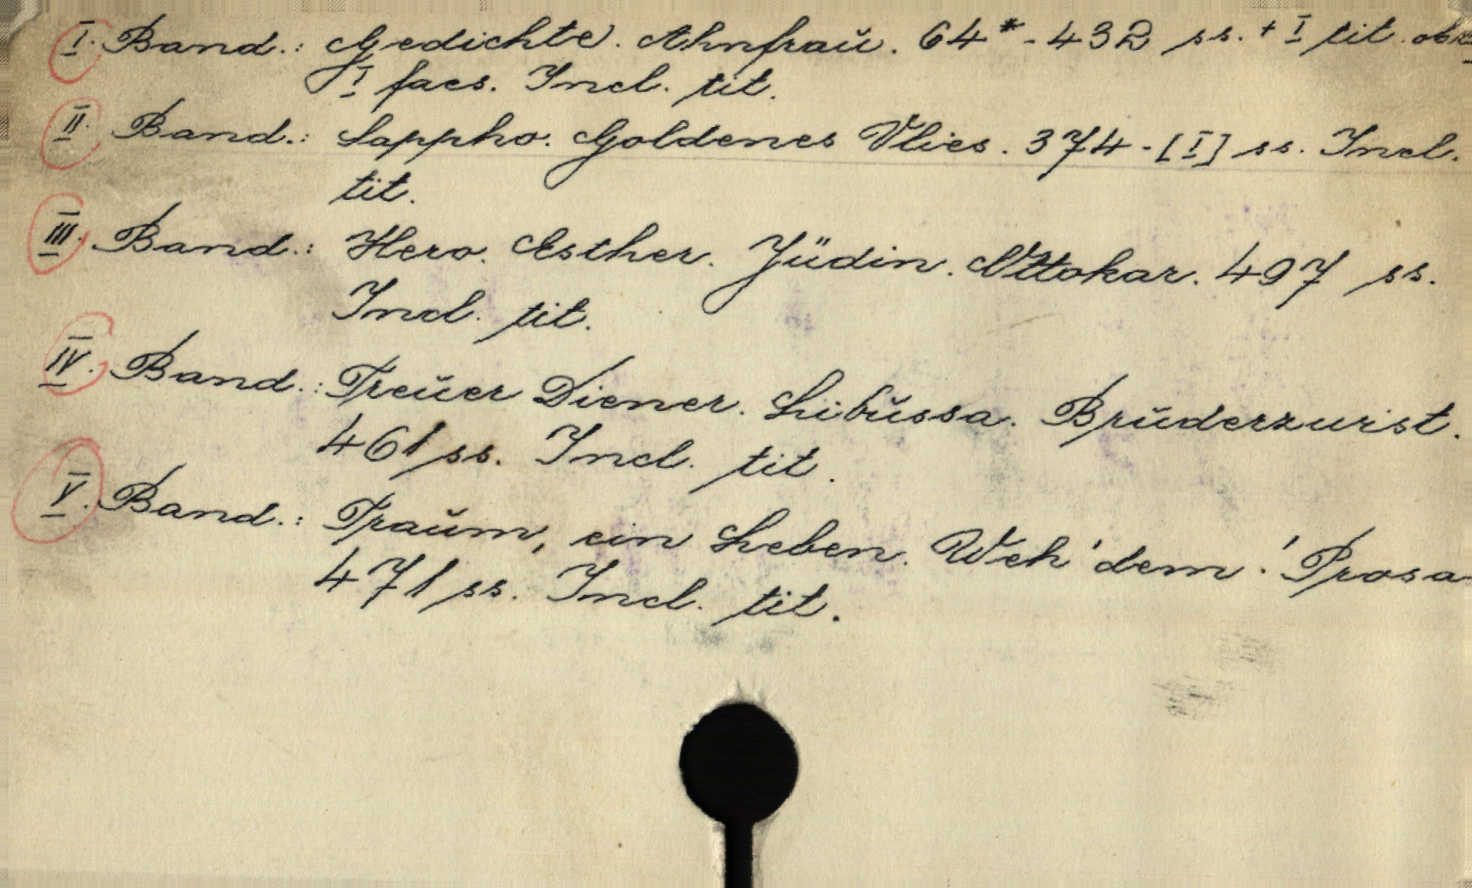 I. Band.: Gedichte. Ahnfraŭ. 64*-432 ss. + I tit. obr.
I facs. Incl. tit.
II. Band.: Sappho. Goldenes Vlies. 374-[I] ss. Incl.
tit.
III. Band.: Hero. Esther. Jüdin. Ottokar. 497 ss.
Incl. tit.
IV. Band.: Treŭer Diener. Libŭssa. Brŭderzwist.
461 ss. Incl. tit.
V. Band.: Traŭm, ein Leben. Weh' dem! Prosa
471 ss. Incl. tit.